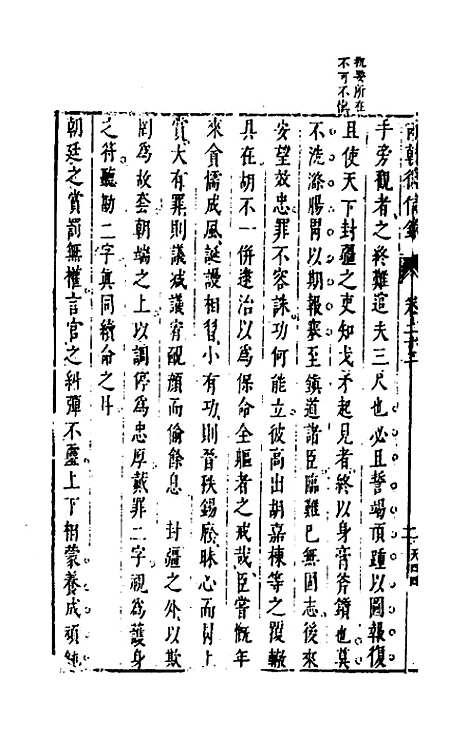 執要所在
不可不偹
兩朝從信錄 卷二十三
手旁觀者之終難逭夫三尺也必且誓竭頂踵以圖報復
且使天下封疆之吏知戈矛起見者終以身膏斧鑕也莫
不洗滌腸胃以期報塞至鎮道諸臣臨難已無固志後來
安望效忠罪不容誅功何能立彼高出胡嘉棟等之覆轍
具在胡不一併逮治以為保命全軀者之戒哉臣嘗慨年
來會儒成風誕謾相習小有功則晉秩錫廕昧心而冒上
賞大有罪則議斌議宥靦顏而偷餘息 封疆之外以欺
罔為故套朝端之上以調停為忠厚戴罪二字視為護身
之符聽勘二字真同續命之丹
朝廷之賞罰無權言官之糾彈不靈上下相蒙養成頑鈍